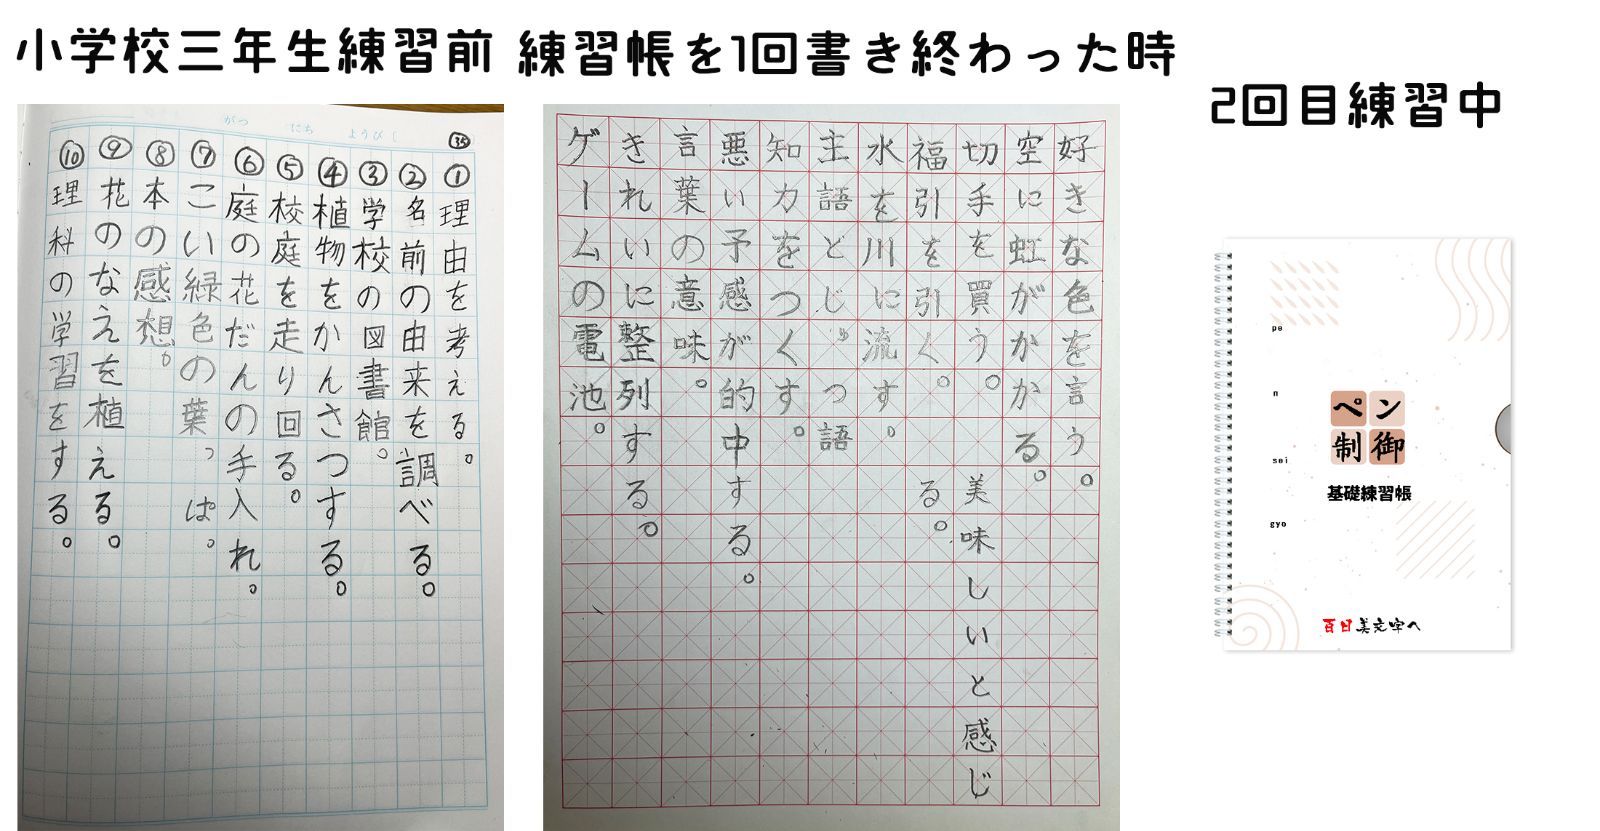 小学校三年生練習前
練習帳を1回書き終わった時
2回目練習中
がつ にち ようび
35
①理由を考える。
②名前の由来を調べる。
③学校の図書館。
④植物をかんさつする。
⑤校庭を走り回る。
⑥庭の花だんの手入れ。
⑦こい緑色の葉っぱ。
⑧本の感想。
⑨花のなえを植える。
⑩理科の学習をする。
好きな色を言う。
空に虹がかかる。
切手を買う。 美味しいと感じ
福引を引く。 る。
水を川に流す。
主語とじゅつ語
知力をつくす。
悪い予感が的中する。
言葉の意味。
きれいに整列する。
ゲームの電池。
pe
n
sei
gyo
ペン
制御
基礎練習帳
百日美文字へ